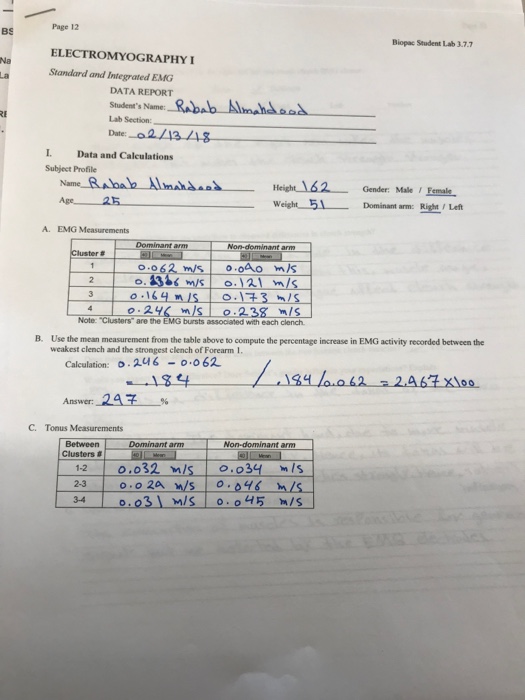 BS
Na
La
RE
Page 12
Biopac Student Lab 3.7.7
ELECTROMYOGRAPHY I
Standard and Integrated EMG
DATA REPORT
Student's Name: Rabab Almahdood
Lab Section:
Date: 02/13/18
I. Data and Calculations
Subject Profile
Name Rabab Almahdood Height 162 Gender: Male / Female
Age 25 Weight 51 Dominant arm: Right / Left
A. EMG Measurements
Cluster # Dominant arm Non-dominant arm
Mean Mean
1 0.062 m/s 0.090 m/s
2 m/s 0.121 m/s
3 0.164 m/s 0.173 m/s
4 0.246 m/s 0.238 m/s
Note: "Clusters" are the EMG bursts associated with each clench.
B. Use the mean measurement from the table above to compute the percentage increase in EMG activity recorded between the
weakest clench and the strongest clench of Forearm 1.
Calculation: 0.246 - 0.062
= .184 / .184/0.062 = 2.967 x100
Answer: 297 %
C. Tonus Measurements
Between Clusters # Dominant arm Non-dominant arm
Mean Mean
1-2 0.032 m/s 0.034 m/s
2-3 0.029 m/s 0.046 m/s
3-4 0.031 m/s 0.045 m/s